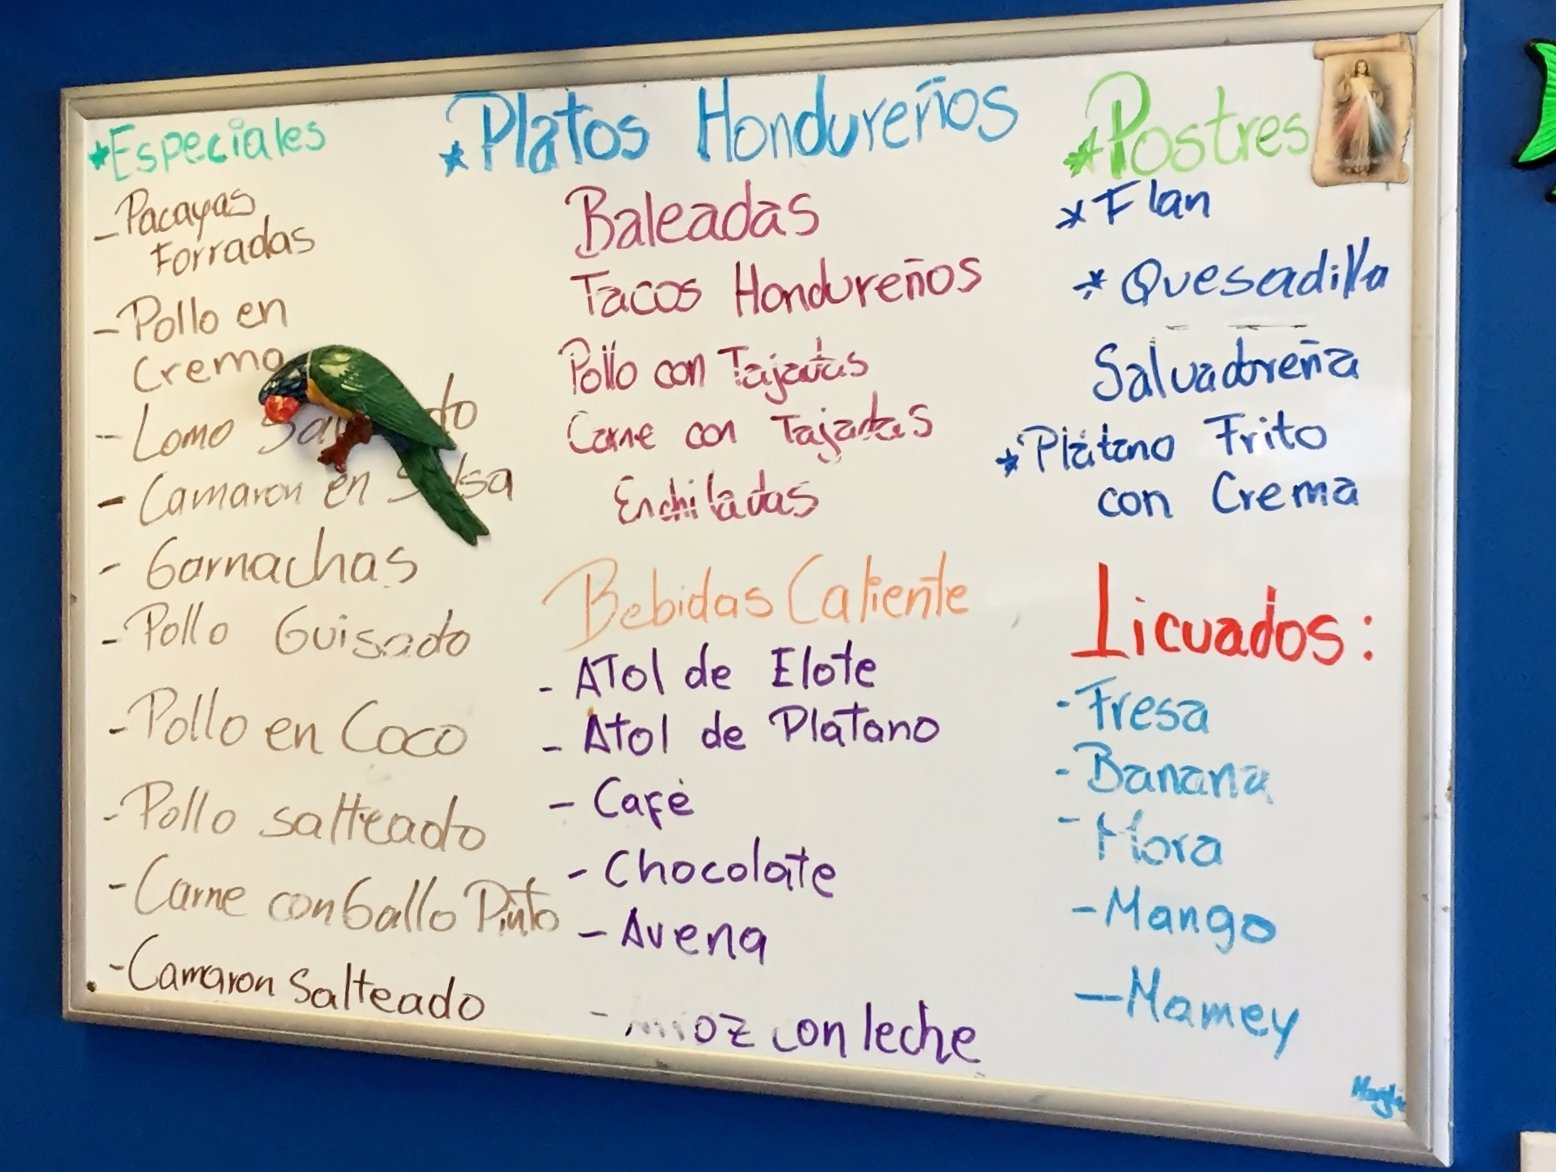 *Especiales
- Pacayas
Forradas
- Pollo en
Crema
- Lomo
- Camaron en
- Garnachas
- Pollo Guisado
- Pollo en Coco
- Pollo salteado
- Carne con Gallo Pinto
- Camaron Salteado
*Platos Hondureños
Baleadas
Tacos Hondureños
Pollo con Tajadas
Carne con Tajadas
Enchiladas
Bebidas Caliente
- Atol de Elote
- Atol de Platano
- Café
- Chocolate
- Avena
- con leche
*Postres
* Flan
* Quesadilla
Salvadoreña
* Plátano Frito
con Crema
Licuados:
- Fresa
- Banana
- Mora
- Mango
- Mamey